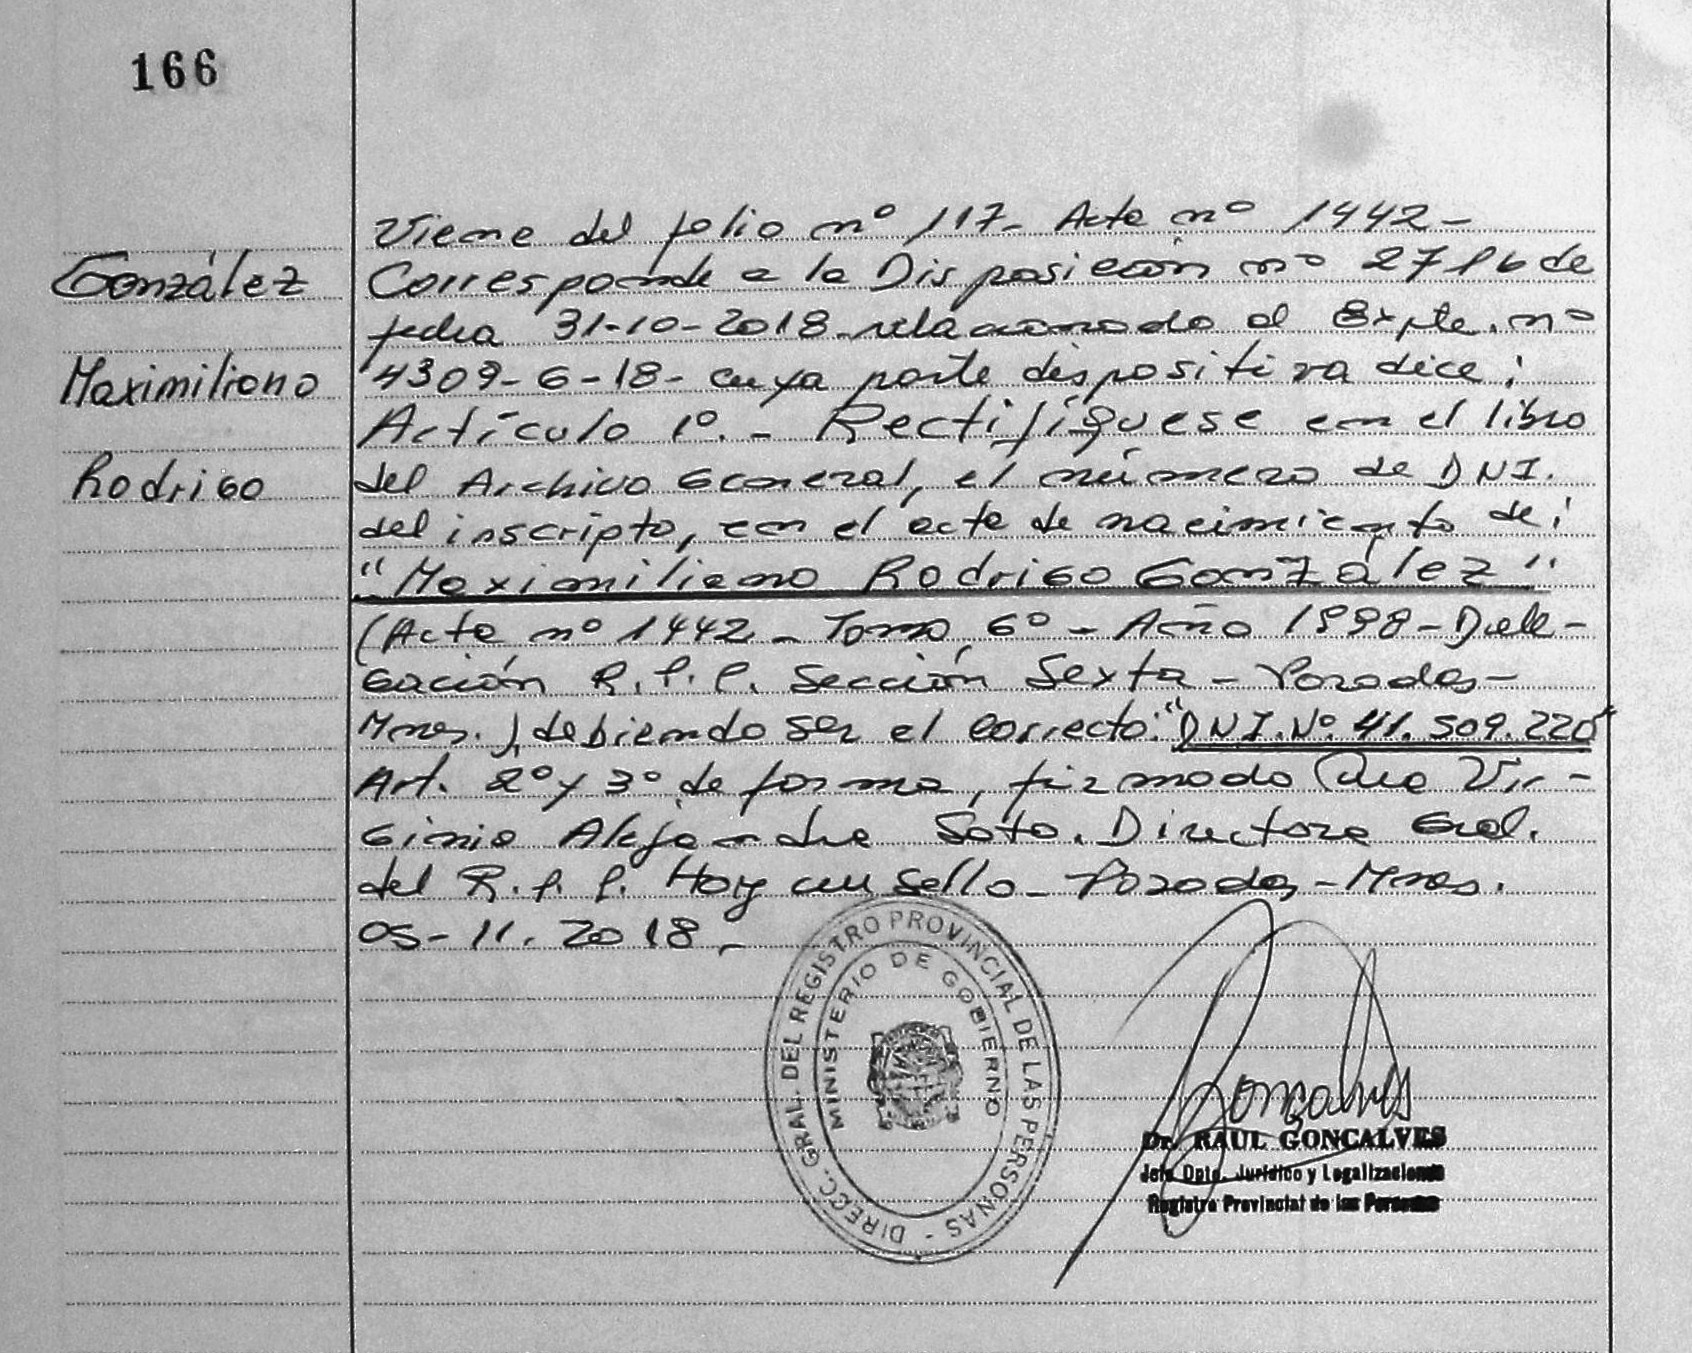 166
González
Maximiliano
Rodrigo
Viene del folio nº 117- Acta nº 1442-
Corresponde a la Disposición nº 2716 de
fecha 31-10-2018 relacionado al Expte. nº
4309-6-18- cuya parte dispositiva dice:
Artículo 1º.- Rectifíquese en el libro
del Archivo General, el número de DNI.
del inscripto, en el acta de nacimiento de:
"Maximiliano Rodrigo González"
(Acta nº 1442 - Tomo 6º - Año 1998 - Dele-
gación R.P.P. Sección Sexta - Posadas -
Mnes.), debiendo ser el correcto: "DNI. Nº 41.509.220"
Art. 2º y 3º de forma, firmado Dra Vir-
ginia Alejandra Soto. Directora Gral.
del R.P.P. Hay un sello - Posadas - Mnes.
05-11-2018-
DIRECC. GRAL. DEL REGISTRO PROVINCIAL DE LAS PERSONAS -
MINISTERIO DE GOBIERNO
Gonçalves
Dr. RAUL GONCALVES
Jefe Dpto. Jurídico y Legalizaciones
Registro Provincial de las Personas